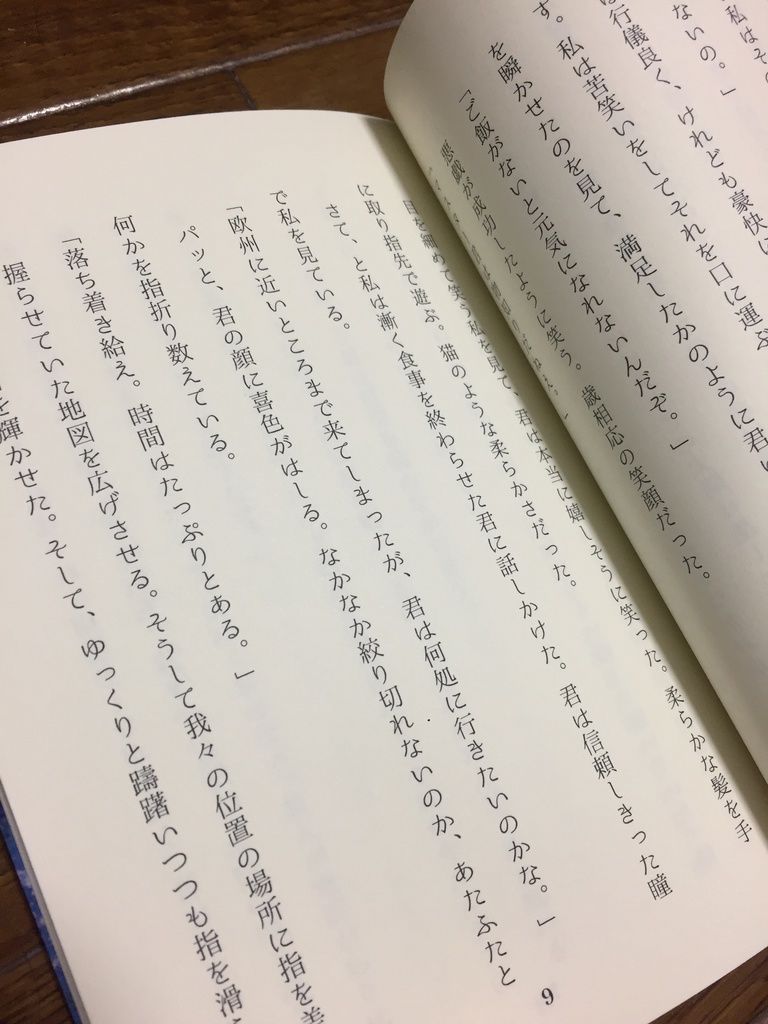 私はそ
ないの。」
行儀良く、けれども豪快に
す。私は苦笑いをしてそれを口に運ぶ
を瞬かせたのを見て、満足したかのように君
「ご飯がないと元気になれないんだぞ。」
悪戯が成功したように笑う。歳相応の笑顔だった。
目を細めて笑う私を見て、君は本当に嬉しそうに笑った。柔らかな髪を手
に取り指先で遊ぶ。猫のような柔らかさだった。
さて、と私は漸く食事を終わらせた君に話しかけた。君は信頼しきった瞳
で私を見ている。
「欧州に近いところまで来てしまったが、君は何処に行きたいのかな。」
パッと、君の顔に喜色がはしる。なかなか絞り切れないのか、あたふたと
何かを指折り数えている。
「落ち着き給え。時間はたっぷりとある。」
握らせていた地図を広げさせる。そうして我々の位置の場所に指を差
を輝かせた。そして、ゆっくりと躊躇いつつも指を滑
9